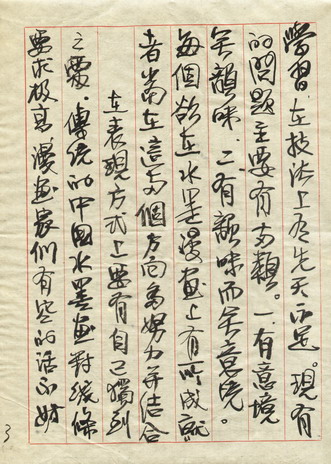 學習．在技法上有先天不足。現有
的問題主要有兩類。一．有意境
無韻味．二．有韻味而無意境。
每個欲在水墨漫画上有所成就
者當在這兩個方向多努力并結合
在表現方式上要有自己獨到
之處．傳統的中國水墨画對線條
要求极高．漫画家們有些的活不
3